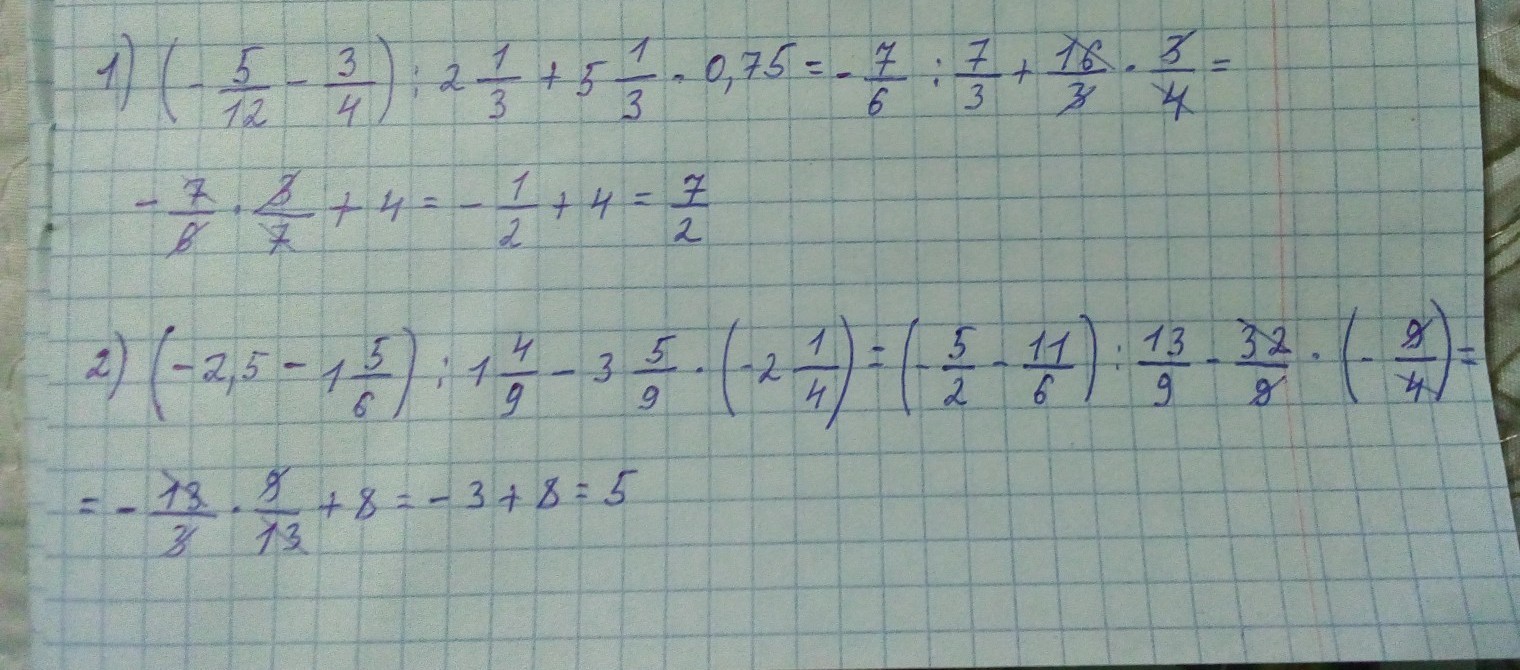 1) (- 5/12 - 3/4) : 2 1/3 + 5 1/3 · 0,75 = - 7/6 : 7/3 + 16/3 · 3/4 =
- 7/6 · 3/7 + 4 = - 1/2 + 4 = 7/2
2) (-2,5 - 1 5/6) : 1 4/9 - 3 5/9 · (-2 1/4) = (- 5/2 - 11/6) : 13/9 - 32/9 · (- 9/4) =
= - 13/3 · 9/13 + 8 = - 3 + 8 = 5